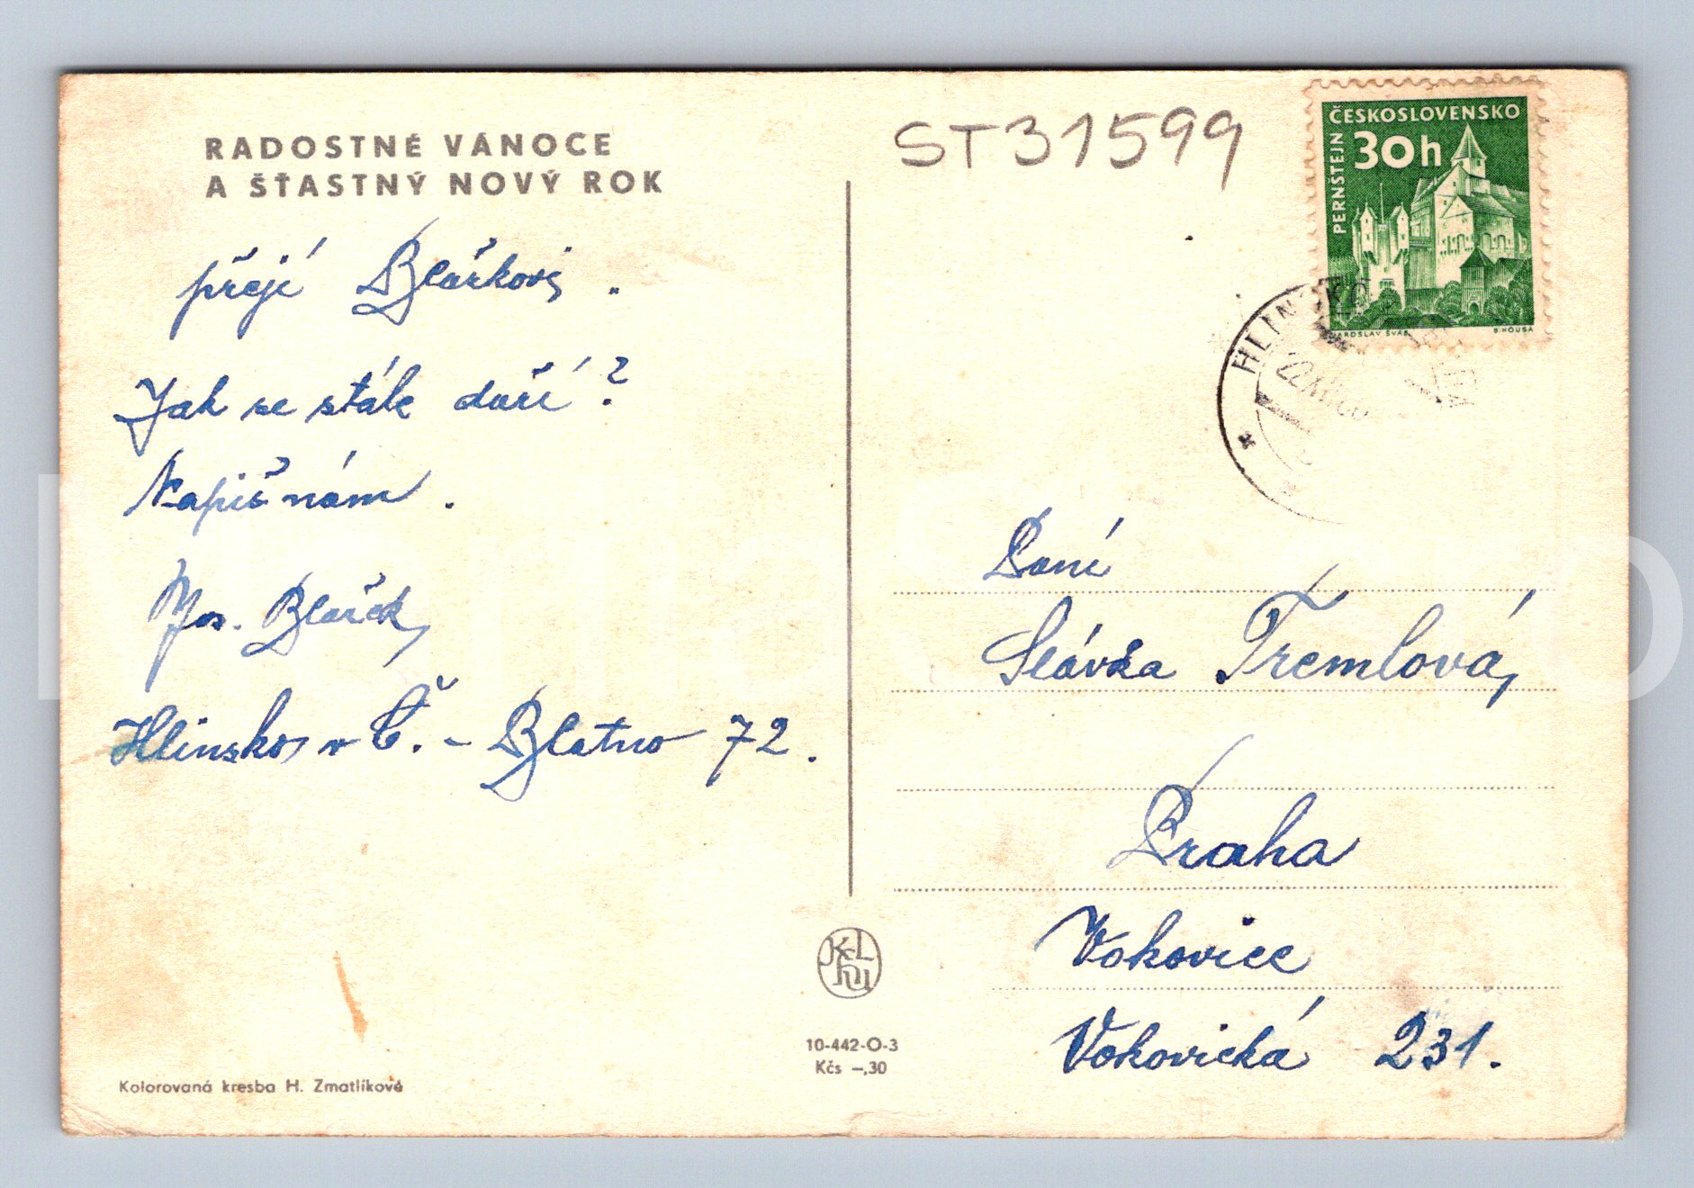 RADOSTNÉ VÁNOCE
A ŠŤASTNÝ NOVÝ ROK
přejí Blaškovi.
Jak se stále daří?
Napiš nám.
Jos. Blašek,
Hlinsko v Č. - Blatno 72.
Kolorovaná kresba H. Zmatlíkové
10-442-O-3
Kčs –,30
ST31599
ČESKOSLOVENSKO
30h
PERNŠTEJN
JAROSLAV ŠVÁB
B. HOUSA
HLINSKO
Paní
Slávka Tremlová,
Praha
Vokovice
Vokovická 231.